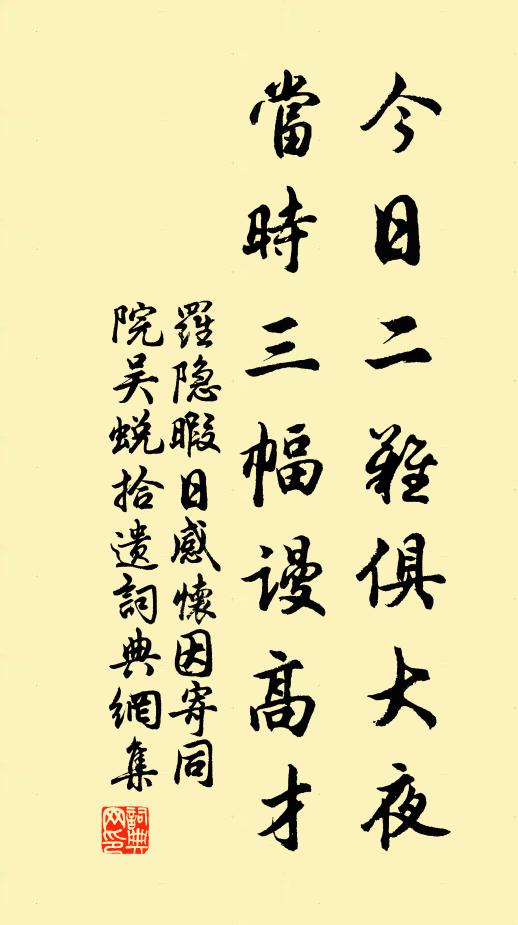 今日二難俱大夜
當時三幅謾高才
羅隐暇日感懷因寄同
院吴蜕拾遺詞典網集
詞典网印